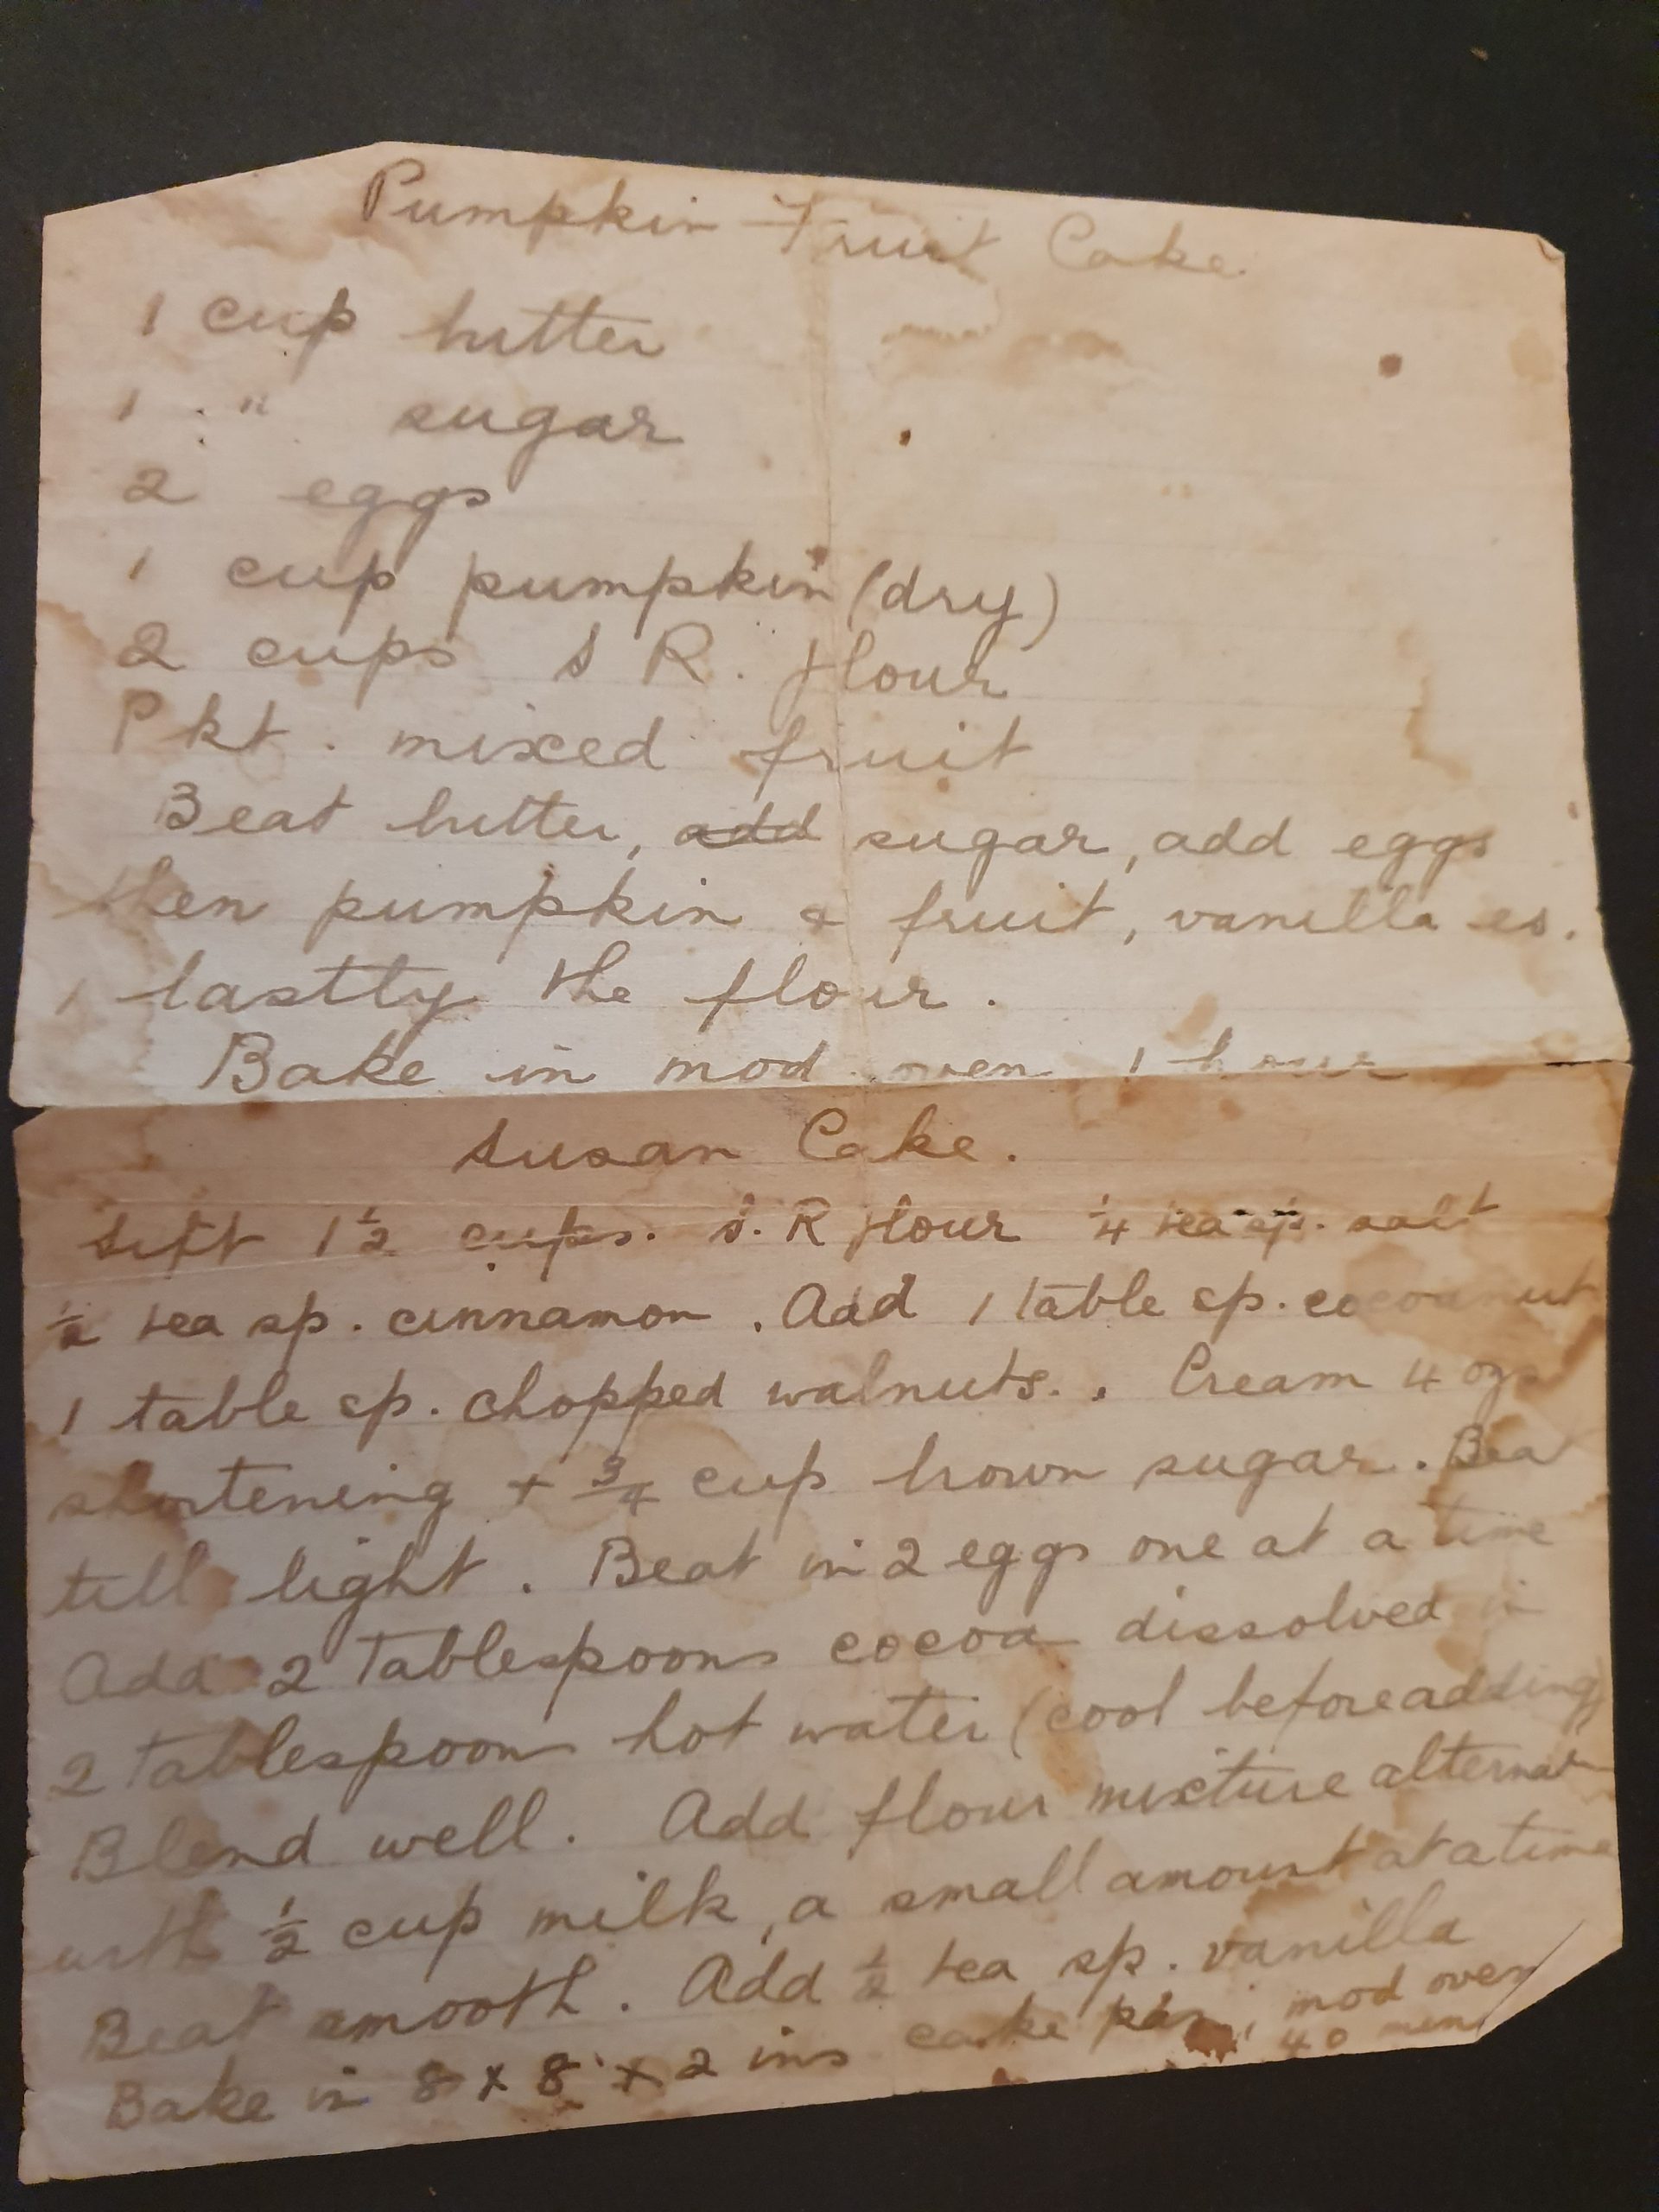 Pumpkin Fruit Cake.
1 cup butter
1 " sugar
2 eggs
1 cup pumpkin (dry)
2 cups S R. flour
Pkt. mixed fruit
Beat butter, add sugar, add eggs
then pumpkin & fruit, vanilla es.
lastly the flour.
Bake in mod oven 1 hour
Susan Cake.
Sift 1 1/2 cups. S. R flour 1/4 tea sp. salt
1/2 tea sp. cinnamon. Add 1 table sp. cocoanut
1 table sp. chopped walnuts. Cream 4 ozs
shortening + 3/4 cup brown sugar. Bea
till light. Beat in 2 eggs one at a time
Add 2 Tablespoons cocoa dissolved in
2 Tablespoons hot water (cool before adding)
Blend well. Add flour mixture alternat
with 1/2 cup milk, a small amount at a time
Beat smooth. Add 1/2 tea sp. vanilla
Bake in 8 x 8 x 2 ins cake pan, mod oven
40 mins